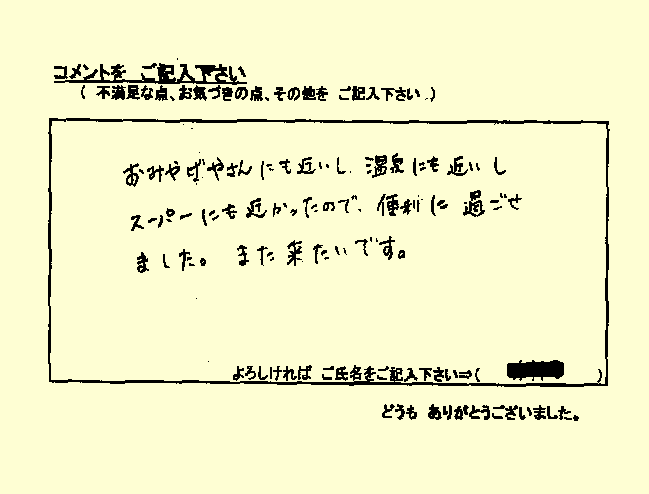 コメントを ご記入下さい
( 不満足な点、お気づきの点、その他を ご記入下さい .)
おみやげやさんにも近いし、温泉にも近いし
スーパーにも近かったので、便利に過ごせ
ました。また来たいです。
よろしければ ご氏名をご記入下さい⇒( )
どうも ありがとうございました。